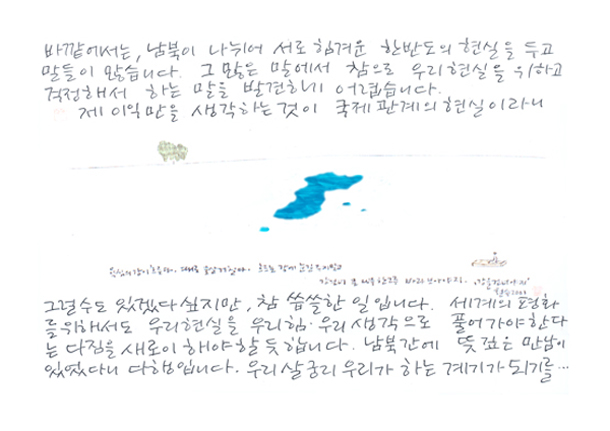 바깥에서는, 남북이 나뉘어 서로 힘겨운 한반도의 현실을 두고
말들이 많습니다. 그 많은 말에서 참으로 우리현실을 위하고
걱정해서 하는 말을 발견하기 어렵습니다.
제 이익만을 생각하는 것이 국제관계의 현실이라니
그럴수도 있겠다 싶지만, 참 씁쓸한 일입니다. 세계의 평화
를위해서도 우리현실을 우리힘·우리생각으로 풀어가야한다
는 다짐을 새로이 해야할 듯합니다. 남북간에 뜻깊은 만남이
있었다니 다행입니다. 우리살궁리 우리가 하는 계기가 되기를…